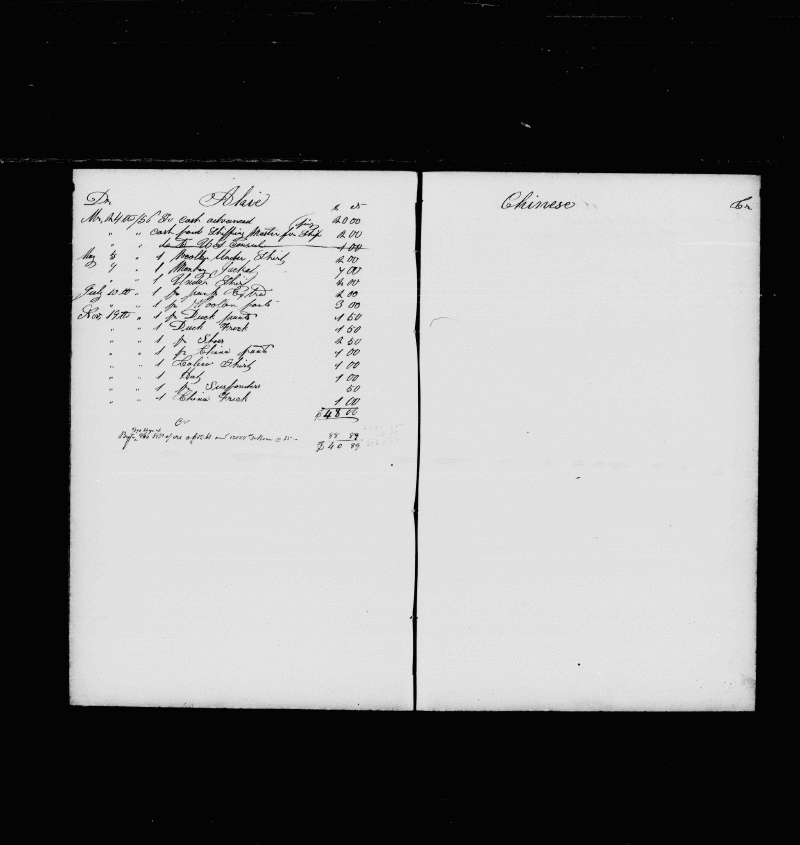 Dr Ahie
$ cts
Mr. 24th /56 To cash advanced 20 00
" " cash paid Shipping Master for Ship 2 00
" " do to U.S. Consul 1 00
May 5 " 1 Woolly Under Shirt 2 00
" 9 " 1 Monkey Jacket 7 00
" 1 Under Shirt 2 00
July 10th " 1 pr pants Extra 2 00
" " 1 pr Woolen pants 3 00
Nov. 19th " 1 pr Duck pants 1 50
" " 1 Duck Frock 1 50
" " 1 pr Shoes 2 50
" " 1 pr China pants 1 00
" " 1 Calico Shirt 1 00
" " 1 Hat 1 00
" " 1 pr Suspenders 50
" " 1 China Frock 1 00
$48 00
Cr
88 89
$40 89
Chinese Cr